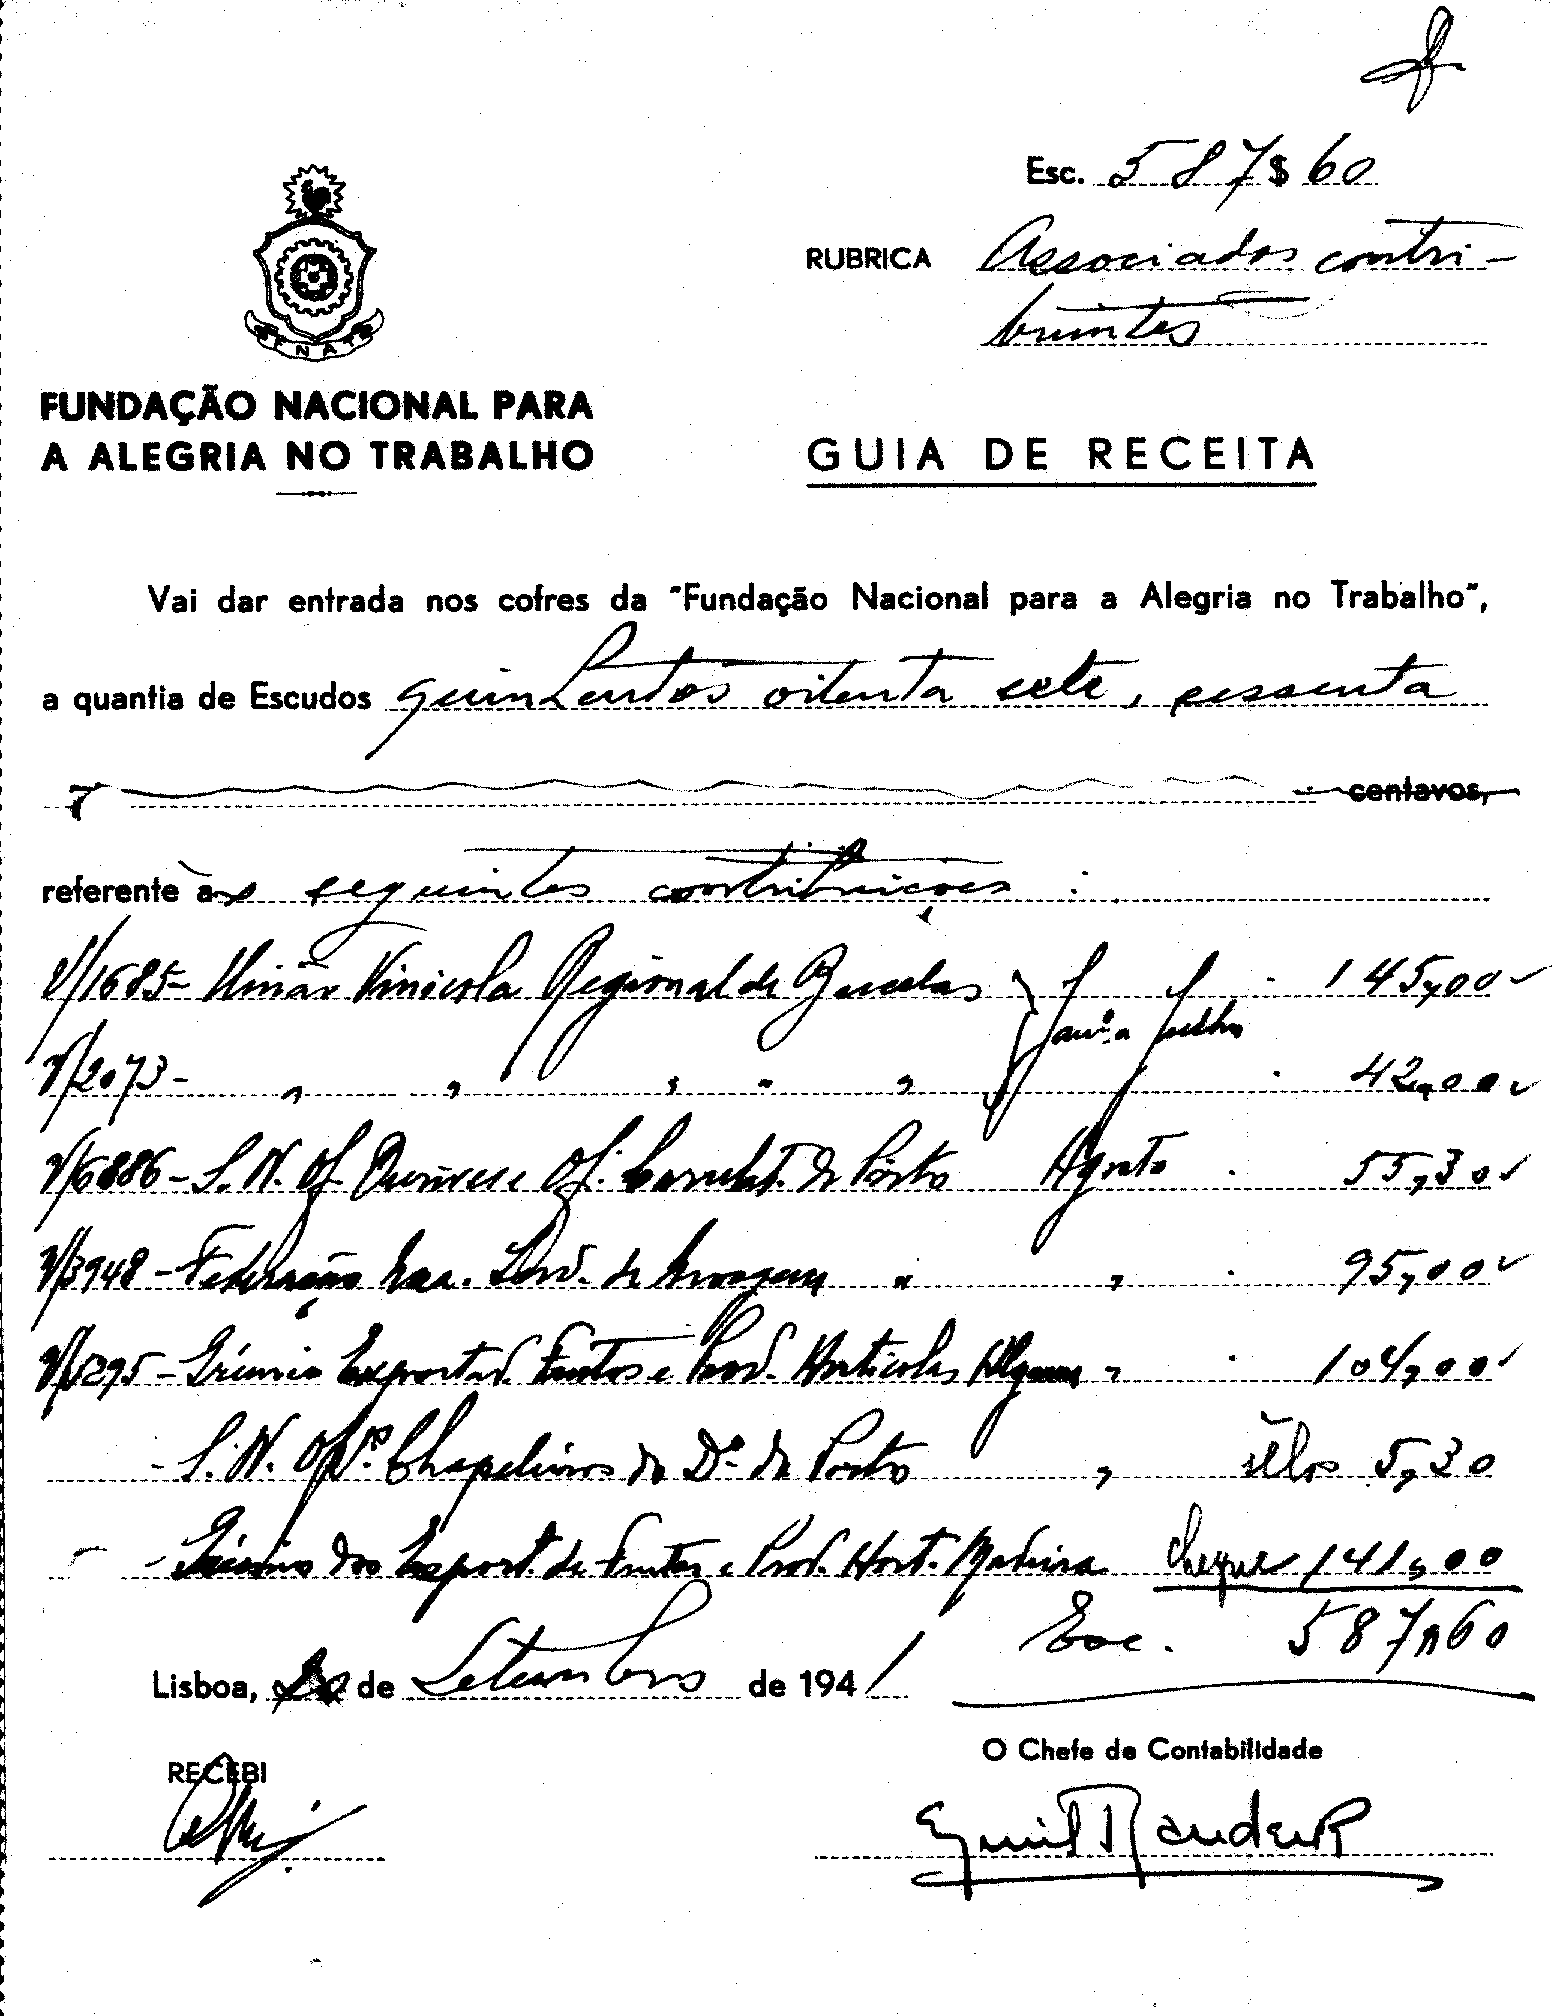 Esc. 587$60
RUBRICA Associados contri-
buintes
FENAT
FUNDAÇÃO NACIONAL PARA
A ALEGRIA NO TRABALHO
GUIA DE RECEITA
Vai dar entrada nos cofres da "Fundação Nacional para a Alegria no Trabalho",
a quantia de Escudos quinhentos oitenta sete, sessenta
centavos,
referente às seguintes contribuições:
V/1685- União Vinicola Regional de Bucelas 145,00
Janº a Julho
V/2073- " " " " " 42,00
V/6886- S. N. Of. Ourives e Of. Correlat. do Pôrto Agosto 55,30
V/3948- Federação Nac. Ind. de Moagem " " 95,00
V/5295- Grémio Exportad. Frutos e Prod. Horticolas Algarve " 104,00
- S. N. Opº. Chapeleiros do Dº. do Porto " sêlos 5,30
- Grémio dos Export. de Frutas e Prod. Hort. Madeira cheque 141,00
Esc. 587$60
Lisboa, de Setembro de 1941
RECEBI
O Chefe de Contabilidade